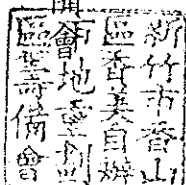 新竹市香山
區香美自辦
市地重劃
區籌備會